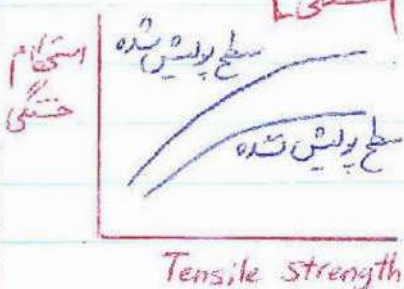 استحکام
خستگی
سطح پولیش شده
سطح پولیش نشده
Tensile strength